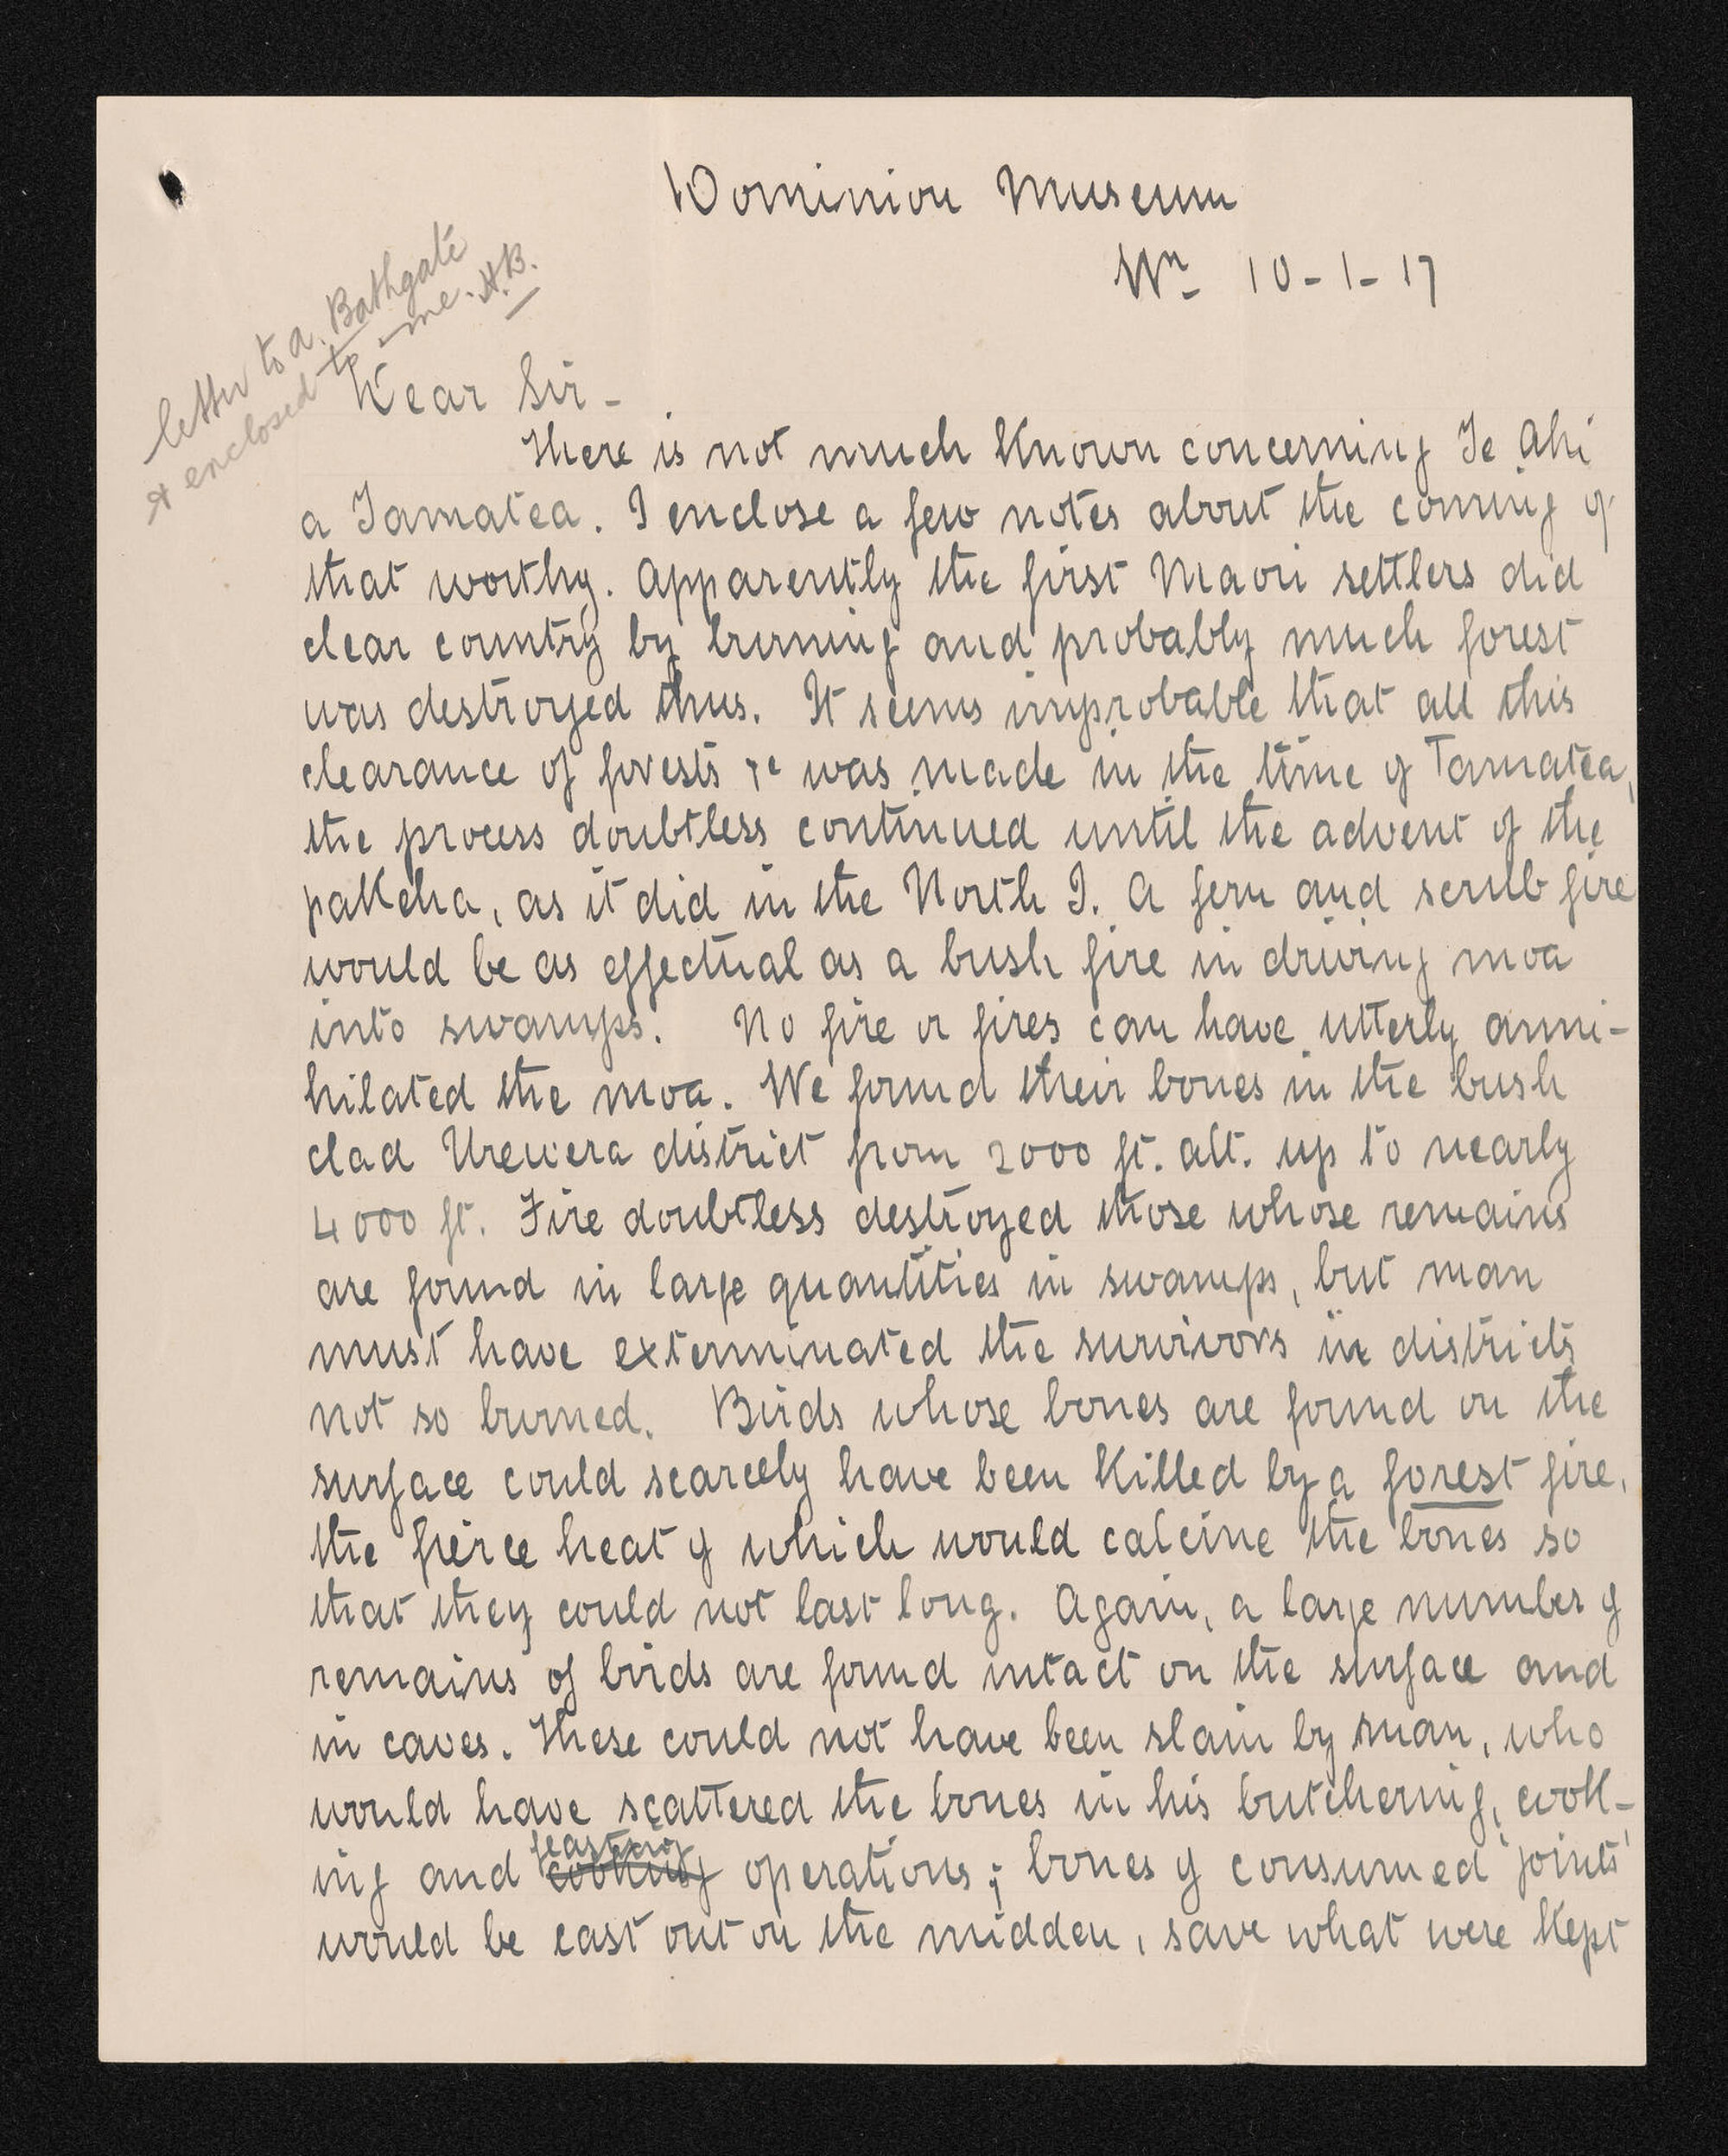 Dominion Museum
Wn 10-1-17
letter to A. Bathgate
& enclosed to me. H.B.
Dear Sir -
There is not much known concerning Te Ahi
a Tamatea. I enclose a few notes about the coming of
that worthy. Apparently the first Maori settlers did
clear country by burning and probably much forest
was destroyed thus. It seems improbable that all this
clearance of forests &c was made in the time of Tamatea,
the process doubtless continued until the advent of the
pakeha, as it did in the North I. A fern and scrub fire
would be as effectual as a bush fire in driving moa
into swamps. No fire or fires can have utterly anni-
hilated the moa. We found their bones in the bush
clad Urewera district from 2000 ft. alt. up to nearly
4000 ft. Fire doubtless destroyed those whose remains
are found in large quantities in swamps, but man
must have exterminated the survivors in districts
not so burned. Birds whose bones are found on the
surface could scarcely have been killed by a forest fire,
the fierce heat of which would calcine the bones so
that they could not last long. Again, a large number of
remains of birds are found intact on the surface and
in caves. These could not have been slain by man, who
would have scattered the bones in his butchering, cook-
feasting
ing and cooking operations; bones of consumed 'joints'
would be cast out on the midden, save what were kept